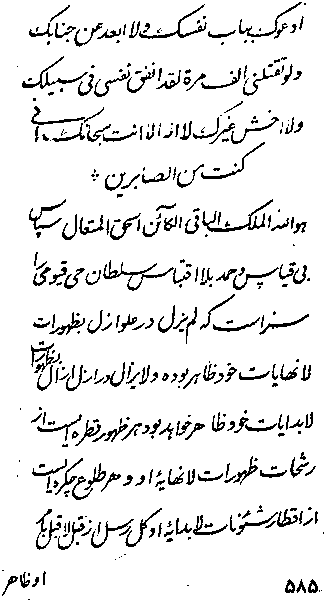 ادعوک بباب نفسک و لا ابعد عن جنابک
ولو تقتلنی الف مرة لقد انفق نفسی فی سبیلک
ولا اخش غیرک لا اله الا انت سبحانک انی
کنت من الصابرین *
هو الله الملک الباقی الکائن الحق المتعال سپاس
بی قیاس و حمد بلا اقتباس سلطان حی قیومی را
سزاست که لم یزل در علو ازل بظهورات
لا نهایات خود ظاهر بوده و لا یزال در ازل ازال بظهورات
لا بدایات خود ظاهر خواهد بود هر ظهور قطره ایست از
رشحات ظهورات لا نهایهٔ او و هر طلوع چکره ایست
از اقطار شئونات لا بدایهٔ او کل رسل از قبل لا قبل بامر
او ظاهر
۵۸۵